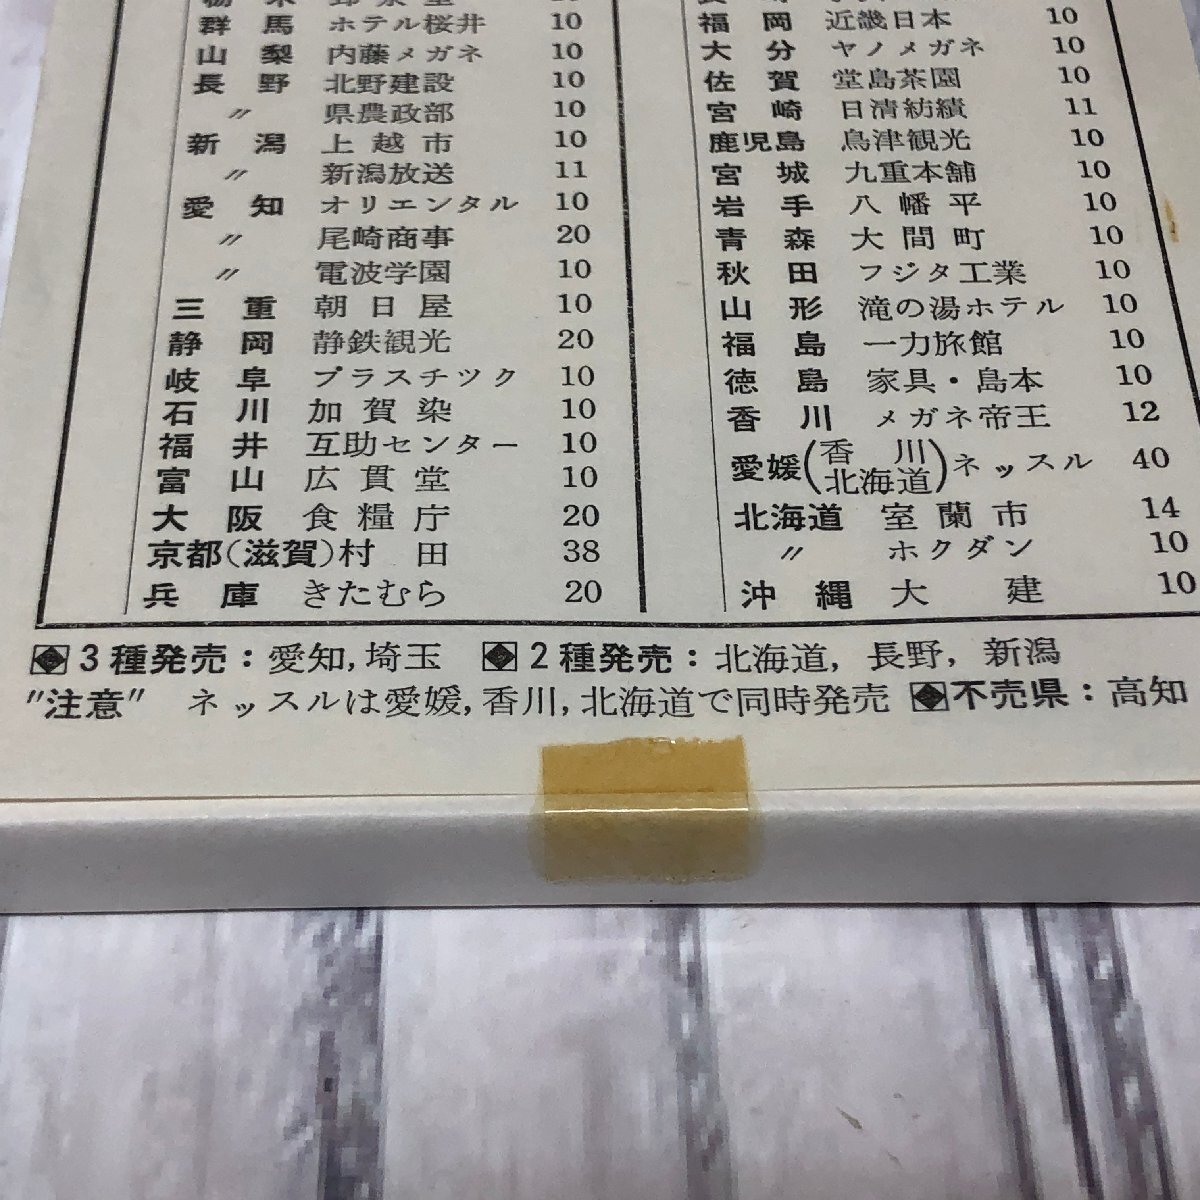 群馬 ホテル桜井 10
山梨 内藤メガネ 10
長野 北野建設 10
〃 県農政部 10
新潟 上越市 10
〃 新潟放送 11
愛知 オリエンタル 10
〃 尾崎商事 20
〃 電波学園 10
三重 朝日屋 10
静岡 静鉄観光 20
岐阜 プラスチツク 10
石川 加賀染 10
福井 互助センター 10
富山 広貫堂 10
大阪 食糧庁 20
京都(滋賀)村田 38
兵庫 きたむら 20
福岡 近畿日本 10
大分 ヤノメガネ 10
佐賀 堂島茶園 10
宮崎 日清紡績 11
鹿児島 島津観光 10
宮城 九重本舗 10
岩手 八幡平 10
青森 大間町 10
秋田 フジタ工業 10
山形 滝の湯ホテル 10
福島 一力旅館 10
徳島 家具・島本 10
香川 メガネ帝王 12
愛媛(香川 北海道)ネッスル 40
北海道 室蘭市 14
〃 ホクダン 10
沖縄 大建 10
3種発売:愛知,埼玉 2種発売:北海道,長野,新潟
"注意" ネッスルは愛媛,香川,北海道で同時発売 不売県:高知